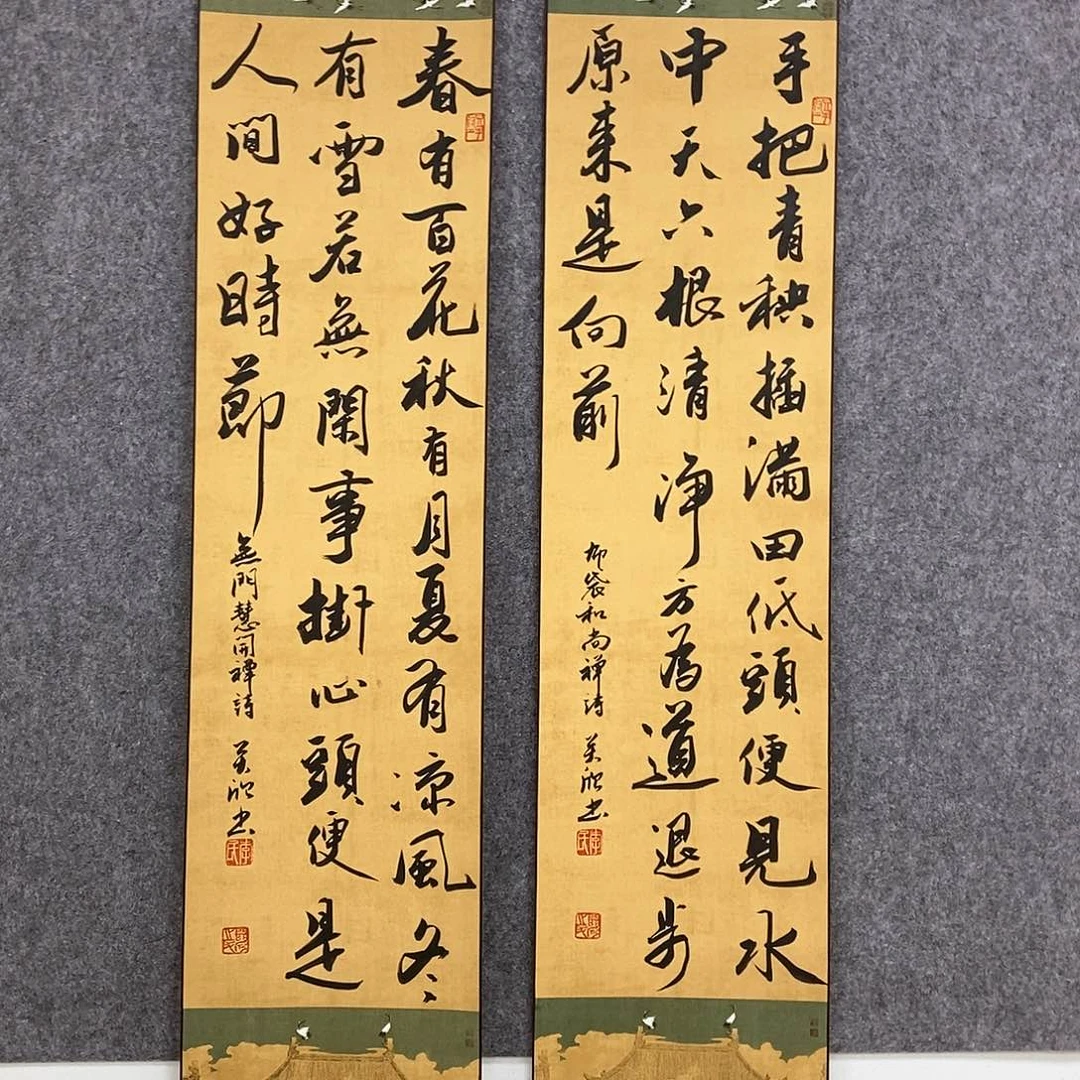 手把青秧插滿田低頭便見水
中天六根清淨方為道退步
原來是向前
布袋和尚禪詩
春有百花秋有月夏有涼風冬
有雪若無閑事掛心頭便是
人間好時節
無門慧開禪詩